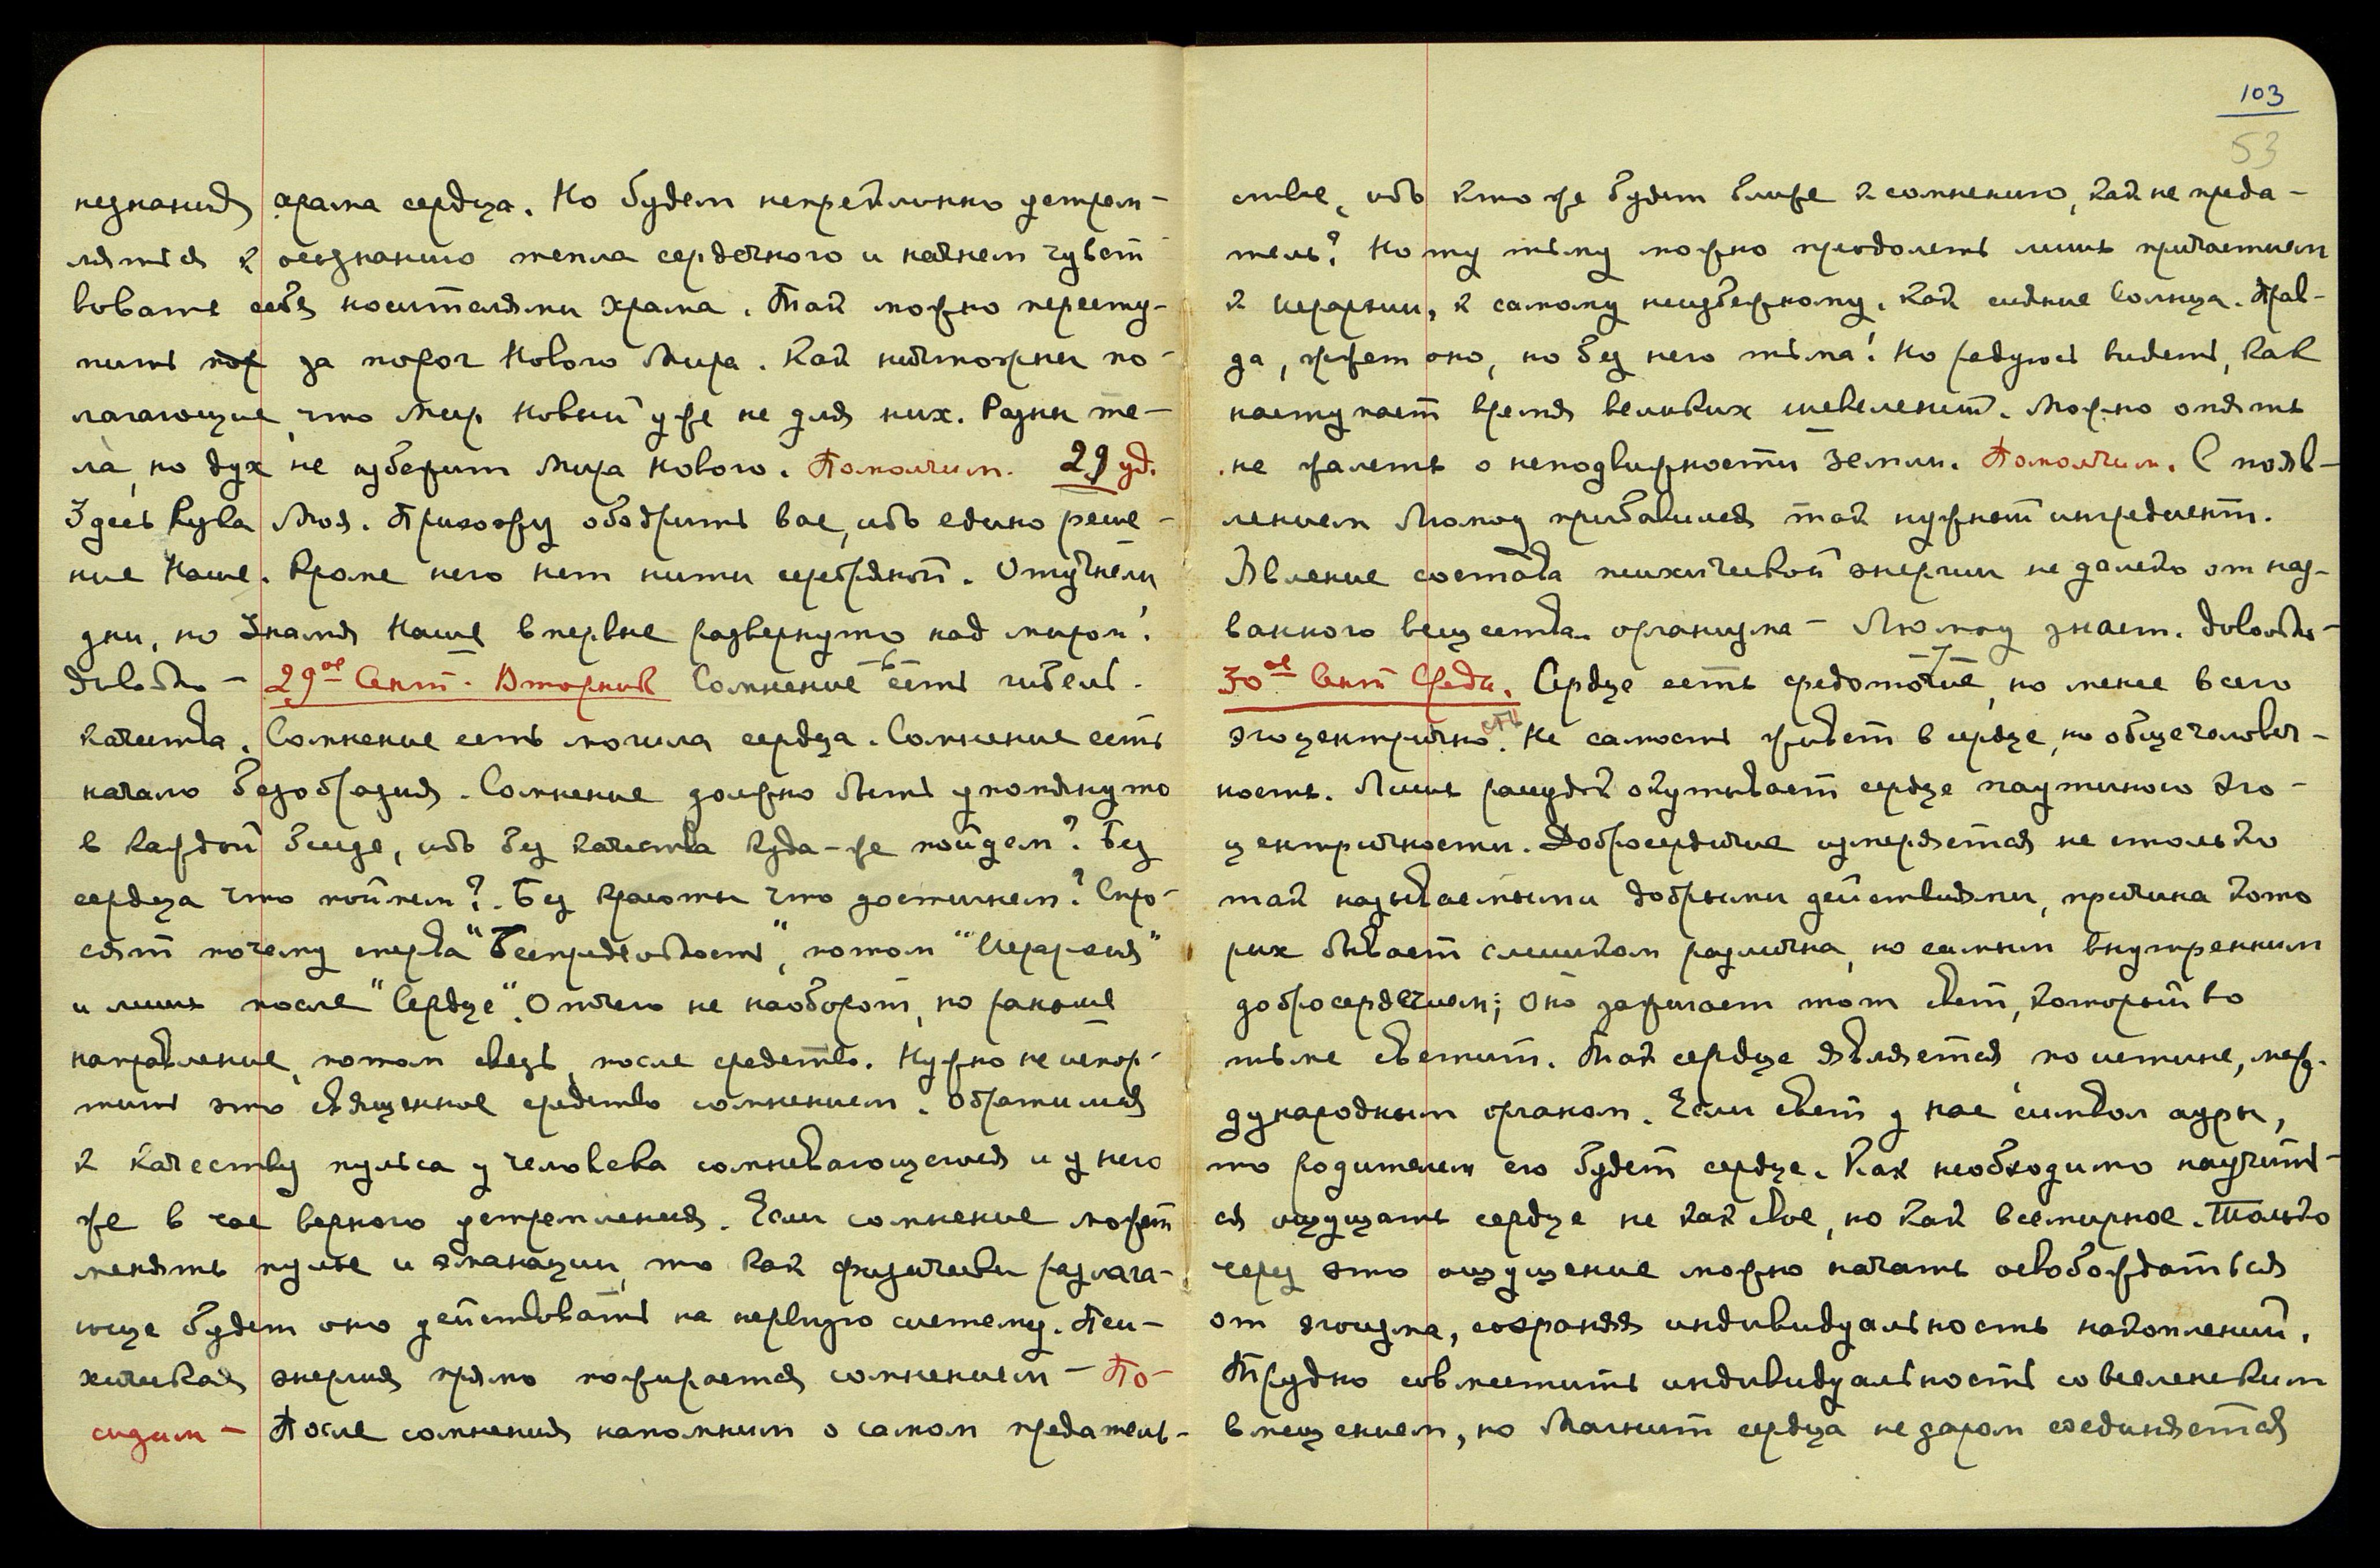 незнания храма сердца. Но будем непреклонно устрем-
ляться к осознанию тепла сердечного и начнем чувст
вовать себя носителями храма. Так можно пересту-
пить за порог Нового Мира. Как ничтожны по-
лагающие, что Мир Новый уже не для них. Разны те-
ла, но дух не избежит Мира Нового. Помолчим. 29 уд.
Здесь Рука Моя. Прихожу ободрить вас, ибо едино реше-
ние Наше. Кроме него нет нити серебряной. Отучнели
дни, но Знамя Наше впервые развернуто над миром!
Довольно – 29ое Сент. Вторник Сомнение есть гибель
качества. Сомнение есть могила сердца. Сомнение есть
начало безобразия. Сомнение должно быть упомянуто
в каждой беседе, ибо без качества куда-же пойдем? Без
сердца что поймем? Без красоты что достигнем? Спро-
сят почему сперва "Беспредельность", потом "Иерархия"
и лишь после "Сердце". Отчего не наоборот, но раньше
направление, потом связь, после средство. Нужно не испор-
тить это священное средство сомнением. Обратимся
к качеству пульса у человека сомневающегося и у него
же в час верного устремления. Если сомнение может
менять пульс и эманации, то как физически разлага-
юще будет оно действовать на нервную систему. Пси-
хическая энергия прямо пожирается сомнением – По-
сидим – После сомнения напомним о самом предатель-
103
53
стве, ибо кто же будет ближе к сомнению, как не преда-
тель? Но ту тьму можно преодолеть лишь причастием
к Иерархии, к самому неизбежному, как сияние Солнца. Прав-
да, жжет оно, но без него тьма! Но радуюсь видеть, как
наступает время великих шевелений. Можно опять
не жалеть о неподвижности Земли. Помолчим. С появ-
лением Люмоу прибавился так нужный ингредиент.
Явление состава психической энергии не далеко от наз-
ванного вещества организма – Люмоу знает. Довольно –
30ое Сент Среда. Сердце есть средоточие, но менее всего
эгоцентрично. Не самость живет в сердце, но общечеловеч-
ность. Лишь рассудок окутывает сердце паутиною эго-
центричности. Добросердечие измеряется не столько
так называемыми добрыми действиями, причина кото
рых бывает слишком различна, но самым внутренним
добросердечием; оно зажигает тот свет, который во
тьме светит. Так сердце является поистине, меж-
дународным органом. Если свет у нас символ ауры,
то родителем его будет сердце. Как необходимо научить-
ся ощущать сердце не как свое, но как всемирное. Только
через это ощущение можно начать освобождаться
от эгоизма, сохраняя индивидуальность накоплений.
Трудно совместить индивидуальность со вселенским
вмещением, но Магнит сердца недаром соединяется